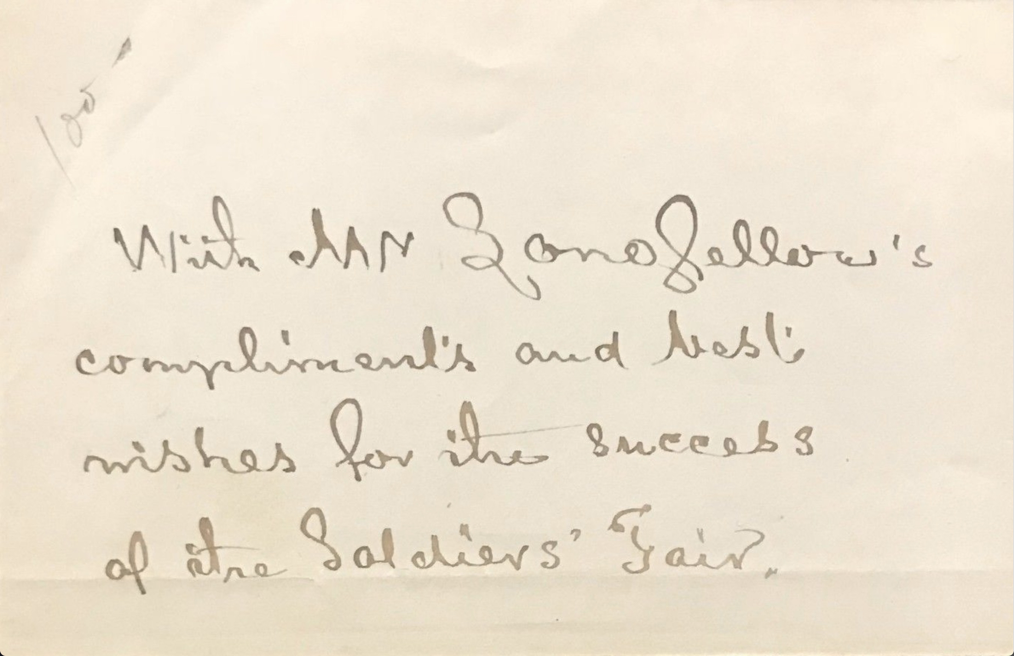 100 -
With Mr Longfellow's
compliments and best
wishes for the success
of the Soldiers' Fair.